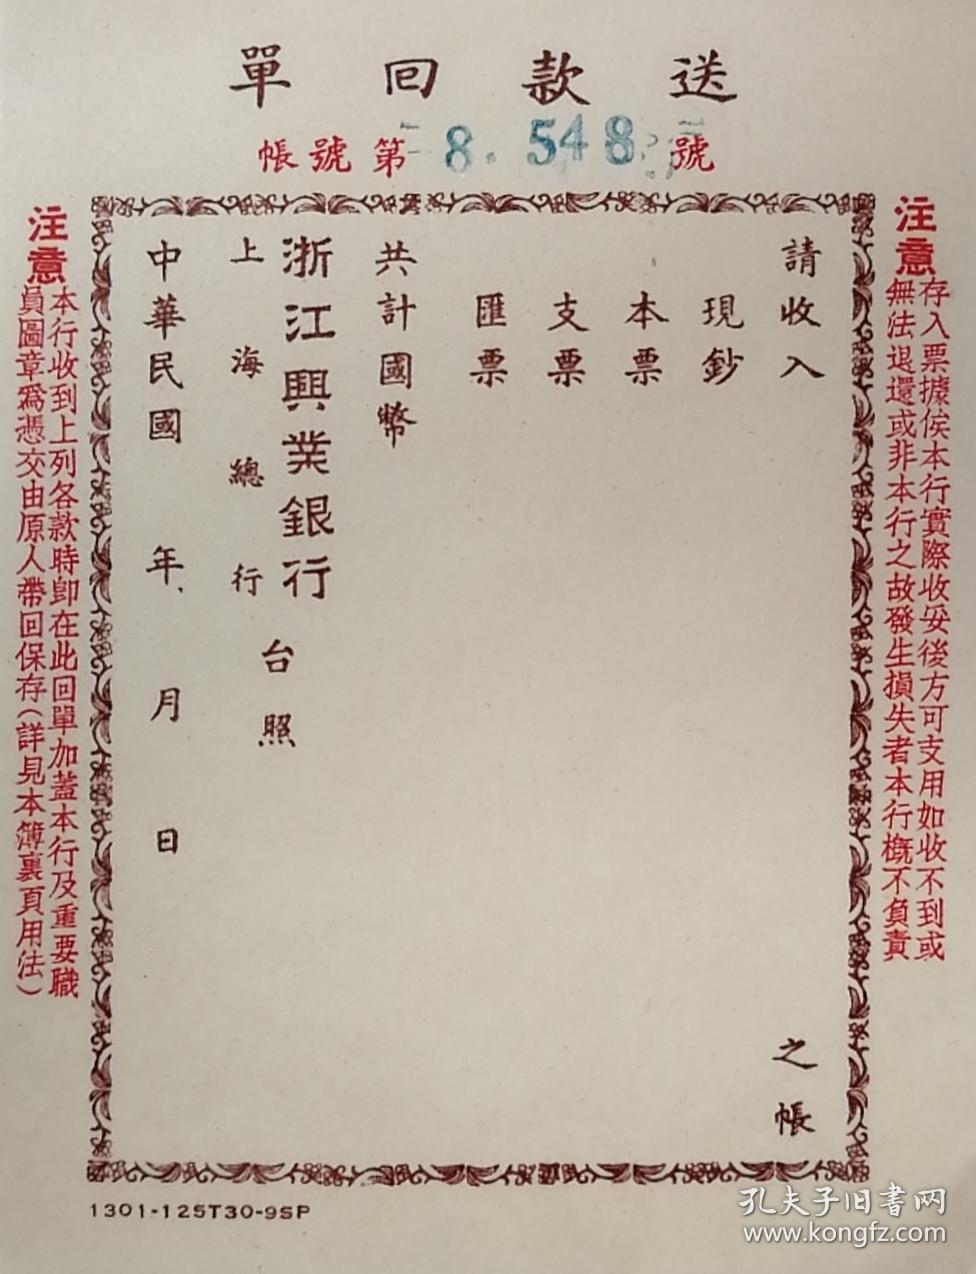 送款回單
帳號第 8.548 號
注意
存入票據俟本行實際收妥後方可支用如收不到或
無法退還或非本行之故發生損失者本行概不負責
請收入 之帳
現鈔
本票
支票
匯票
共計國幣
浙江興業銀行 台照
上海總行
中華民國 年 月 日
注意
本行收到上列各款時卽在此回單加蓋本行及重要職
員圖章爲憑交由原人帶回保存(詳見本簿裏頁用法)
1301-125T30-9SP
孔夫子旧書网
www.kongfz.com